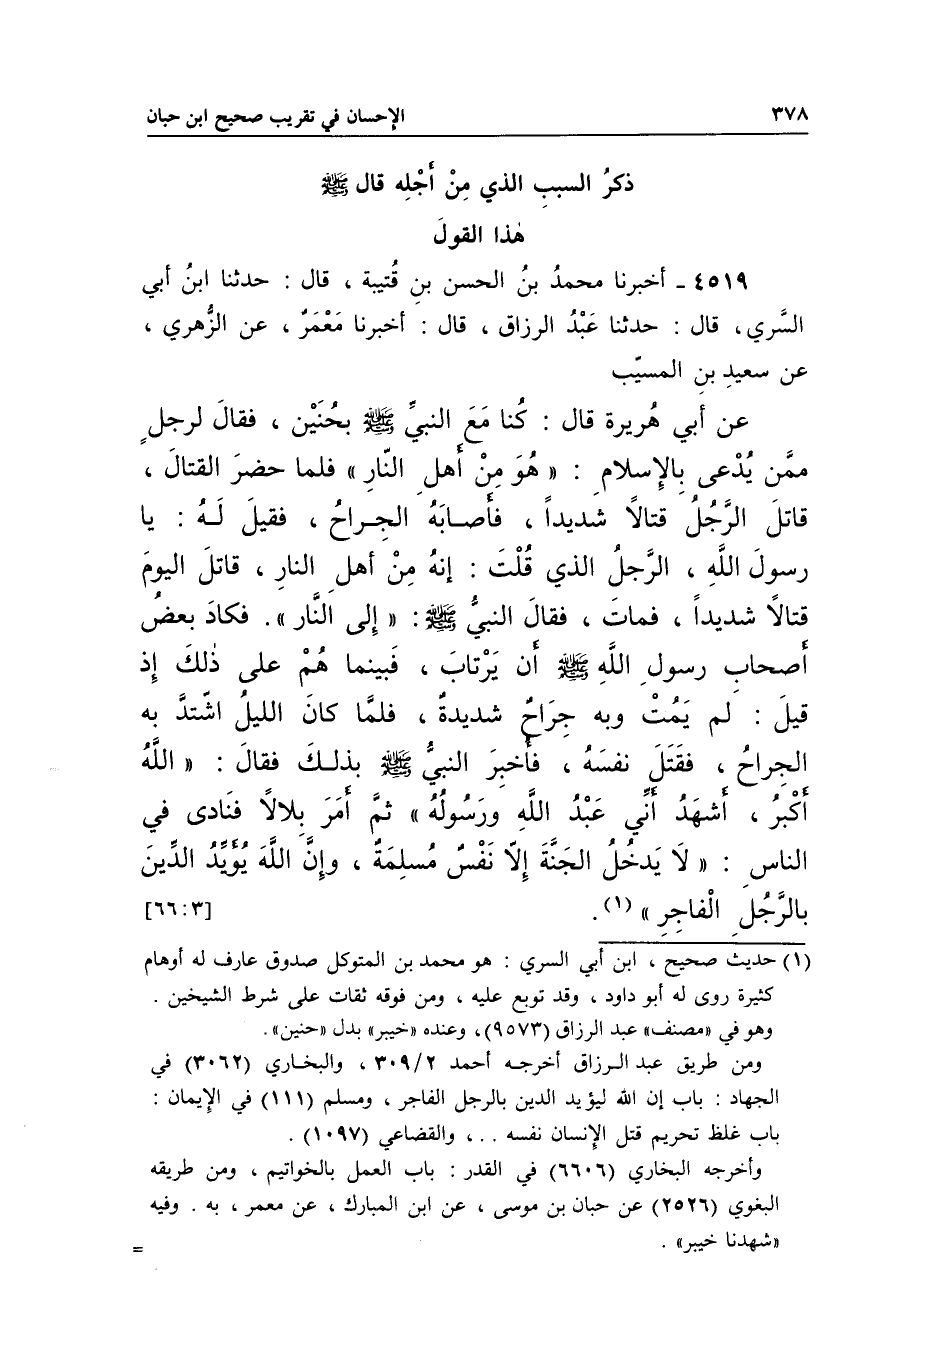 ٣٧٨ الإحسان في تقريب صحيح ابن حبان
ذكرُ السببِ الذي مِنْ أَجْلِه قال ﷺ
هٰذا القولَ
٤٥١٩ ـ أخبرنا محمدُ بنُ الحسن بنِ قُتيبة ، قال : حدثنا ابنُ أبي
السَّري، قال : حدثنا عَبْدُ الرزاق ، قال : أخبرنا مَعْمَرٌ ، عن الزُّهري ،
عن سعيدِ بنِ المسيّب
عن أبي هُريرة قال : كُنا مَعَ النبيِّ ﷺ بحُنَيْن ، فقالَ لرجلٍ
ممَّن يُدْعى بِالإسلامِ : « هُوَ مِنْ أَهلِ النَّارِ » فلما حضرَ القتالَ ،
قاتلَ الرَّجُلُ قتالاً شديداً ، فأَصـابَهُ الجِـراحُ ، فقيلَ لَـهُ : يا
رسولَ اللَّهِ ، الرَّجلُ الذي قُلْتَ : إنهُ مِنْ أهلِ النارِ ، قاتلَ اليومَ
قتالاً شديداً ، فماتَ ، فقالَ النبيُّ ﷺ: « إلى النَّار ». فكادَ بعضُ
أَصحابِ رسولِ اللَّهِ ﷺ أَن يَرْتابَ ، فَبينما هُمْ على ذٰلكَ إذ
قيلَ : لم يَمُتْ وبه جِرَاحٌ شديدةٌ ، فلمَّا كانَ الليلُ اشْتدَّ به
الجِراحُ ، فقَتَلَ نفسَهُ ، فأُخبِرَ النبيُّ ﷺ بذلـكَ فقالَ : « اللَّهُ
أَكْبرُ ، أَشهَدُ أَنِّي عَبْدُ اللَّهِ ورَسُولُهُ » ثمَّ أَمَرَ بِلالاً فنَادى في
الناسِ : « لاَ يَدخُلُ الجَنَّةَ إلاّ نَفْسٌ مُسلِمَةٌ ، وإنَّ اللَّهَ يُؤَيِّدُ الدِّينَ
بالرَّجُلِ الْفاجِرِ » (١). [٦٦:٣]
(١) حديث صحيح ، ابن أبي السري : هو محمد بن المتوكل صدوق عارف له أوهام
كثيرة روى له أبو داود ، وقد توبع عليه ، ومن فوقه ثقات على شرط الشيخين .
وهو في «مصنف» عبد الرزاق (٩٥٧٣)، وعنده «خيبر» بدل «حنين».
ومن طريق عبد الـرزاق أخرجـه أحمد ٣٠٩/٢ ، والبخـاري (٣٠٦٢) في
الجهاد : باب إن الله ليؤيد الدين بالرجل الفاجر ، ومسلم (١١١) في الإيمان :
باب غلظ تحريم قتل الإنسان نفسه . . ، والقضاعي (١٠٩٧) .
وأخرجه البخاري (٦٦٠٦) في القدر : باب العمل بالخواتيم ، ومن طريقه
البغوي (٢٥٢٦) عن حبان بن موسى ، عن ابن المبارك ، عن معمر ، به . وفيه
«شهدنا خيبر» . =